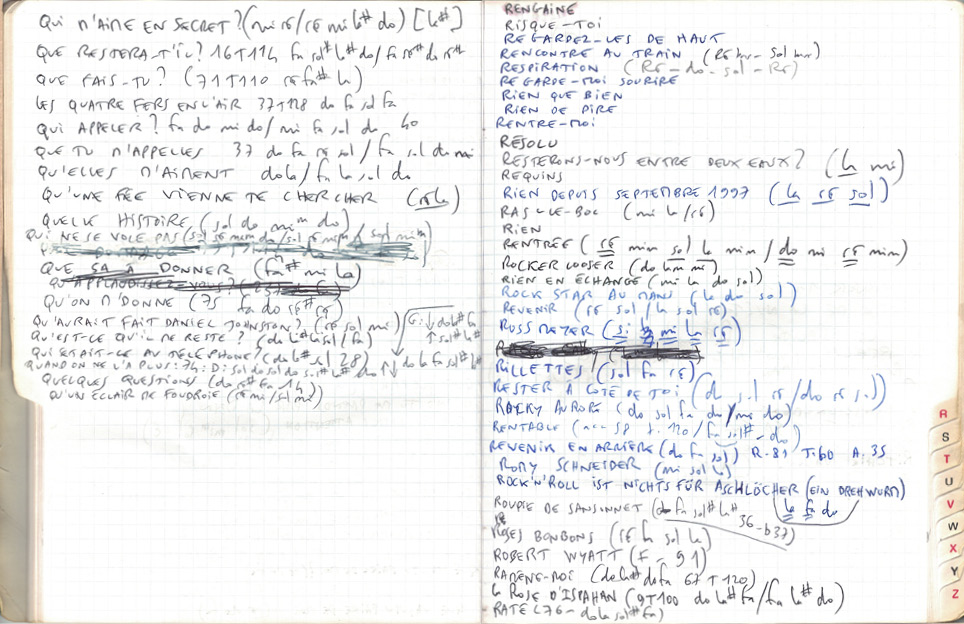 QUI M'AIME EN SECRET ? (mi ré/ré mi la# do) [la#]
QUE RESTERA-T'IL ? 16T114 fa sol# la# do/fa ré# do ré#
QUE FAIS-TU ? (71T110 ré fa# la)
LES QUATRE FERS EN L'AIR 37T128 do fa sol fa
QUI APPELER ? fa do mi do/mi fa sol do 40
QUE TU M'APPELLES 37 do fa ré sol/fa sol do mi
QU'ELLES M'AIMENT do la/fa la sol do
QU'UNE FÉE VIENNE TE CHERCHER (ré la)
QUELLE HISTOIRE (sol do mi m do)
QUI NE SE VOLE PAS
QUE SA A DONNER (fa# mi la)
QU'APPLAUDISSEZ-VOUS ?
QU'ON M'DONNE (75 fa do ré# ré)
QU'AURAIT FAIT DANIEL JOHNSTON ? (ré sol mi)
QU'EST-CE QU'IL ME RESTE ? (do la# la sol/fa)
QUI SERAIT-CE AU TÉLÉPHONE ? (do la# sol 28)
QUAND ON NE L'A PLUS : 74 : D : sol do sol do
QUELQUES QUESTIONS (do ré# fa 14)
QU'UN ÉCLAIR DE FOUDROIE (ré mi/sol mi)
RENGAINE
RISQUE-TOI
REGARDEZ-LES DE HAUT
RENCONTRE AU TRAIN (Ré m - sol m)
RESPIRATION (Ré - do - sol - Ré)
REGARDE-MOI SOURIRE
RIEN QUE BIEN
RIEN DE PIRE
RENTRE-MOI
RÉSOLU
RESTERONS-NOUS ENTRE DEUX EAUX ? (la mi)
REQUINS
RIEN DEPUIS SEPTEMBRE 1997 (la ré sol)
RAS-LE-BOL (mi la/ré)
RIEN
RENTRÉE (ré mim sol la mim/do mi ré mim)
ROCKER LOOSER (do lam mi)
RIEN EN ÉCHANGE (mi la do sol)
ROCK STAR AU MANS (la do sol)
REVENIR (ré sol/la sol ré)
RUSS MEYER (si mi la ré)
RILLETTES (sol fa ré)
RESTER À CÔTÉ DE TOI (do sol ré/do ré sol)
RICKY AURORE (do sol fa do/mi do)
RENTABLE (acc 58 t. 120/fa sol# - do)
REVENIR EN ARRIÈRE (do fa sol) R.81 T.60 A.35
ROMY SCHNEIDER (mi sol la)
ROCK'N'ROLL IST NICHTS FÜR ASCHLÖCHER (EIN DREHWURM)
la fa do
ROUPIE DE SANSONNET (do fa sol# la# 36-b37)
ROSES BONBONS (ré la sol la)
ROBERT WYATT (F - 91)
RAMÈNE-MOI (do la# do fa 67 T 120)
la ROSE D'ISPAHAN (9T100 do la# fa/fa la# do)
RATE L76 - do la sol# fa)
R
S
T
U
V
W
X
Y
Z